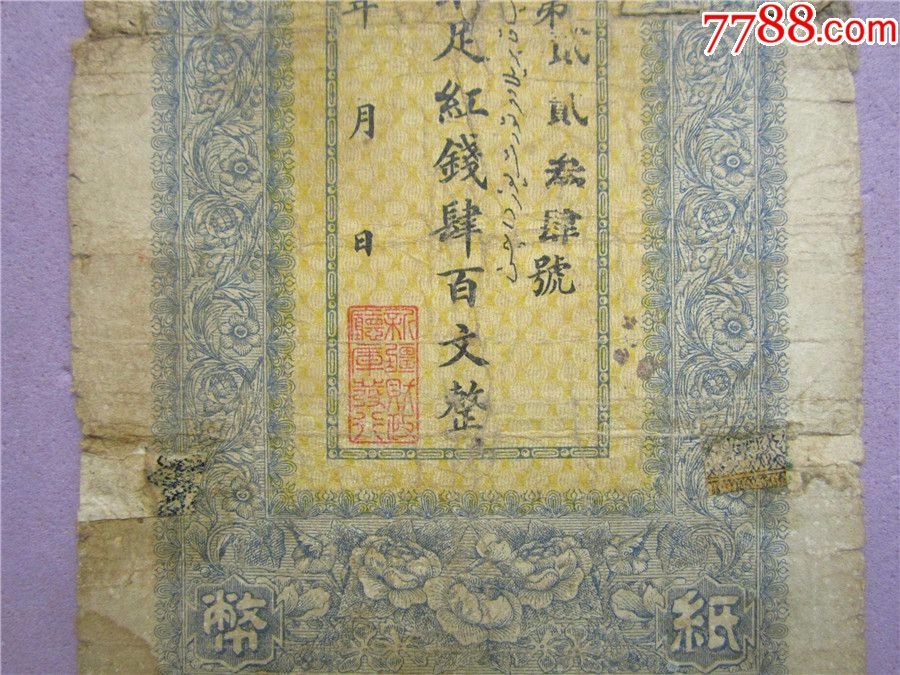 7788.com
第貳貳叁肆號
足紅錢肆百文整
年 月 日
新疆財政
廳庫發行
紙幣